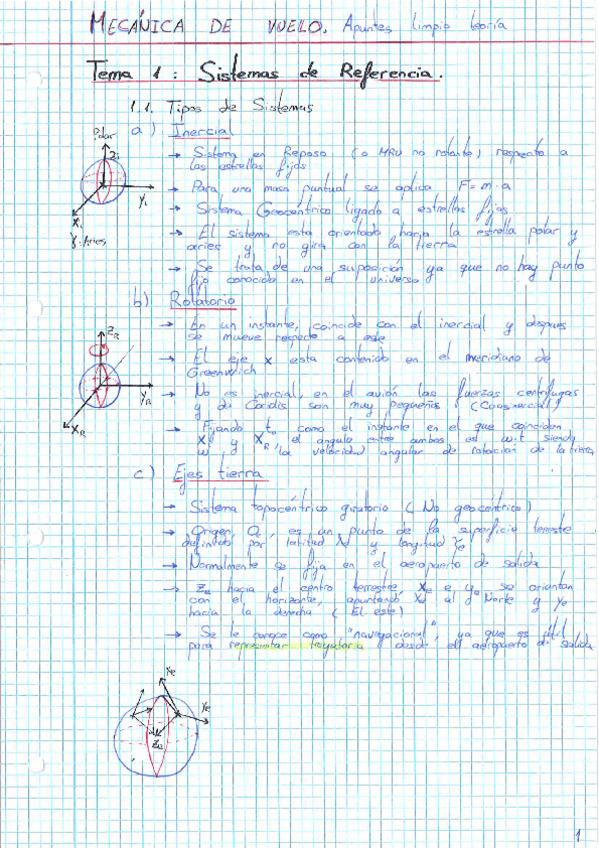 MECÁNICA DE VUELO. Apuntes limpio teoría
Tema 1: Sistemas de Referencia.
1.1. Tipos de Sistemas
a) Inercial
Polar
Z
Y
X
γ Aries
→ Sistema en Reposo (o MRU no rotante) respecto a
las estrellas fijas
→ Para una masa puntual se aplica F = m · a
→ Sistema Geocéntrico ligado a estrellas fijas
→ El sistema esta orientado hacia la estrella polar y
aries y no gira con la tierra
→ Se trata de una suposición ya que no hay punto
fijo conocido en el universo
b) Rotatorio
Z_R
Y_R
X_R
→ En un instante, coincide con el inercial y despues
se mueve respecto a este
→ El eje x esta contenido en el meridiano de
Greenwich
→ No es inercial, en el avión las fuerzas centrifugas
y de Coriolis son muy pequeñas
→ Fijando t₀ como el instante en el que coinciden
X y X_R, el angulo entre ambos es w·t siendo
w la velocidad angular de rotación de la tierra
c) Ejes tierra
→ Sistema topocéntrico giratorio (No geocéntrico)
→ Origen O, es un punto de la superficie terrestre
definido por latitud y longitud
→ Normalmente se fija en el aeropuerto de salida
→ Z_e hacia el centro terrestre, X_e e Y_e se orientan
con el horizonte, apuntando X al Norte y Y_e
hacia la derecha (El este)
→ Se le conoce como "navigacional", ya que es útil
para representar trayectoria desde el aeropuerto de salida
Y_e
Z_e
1